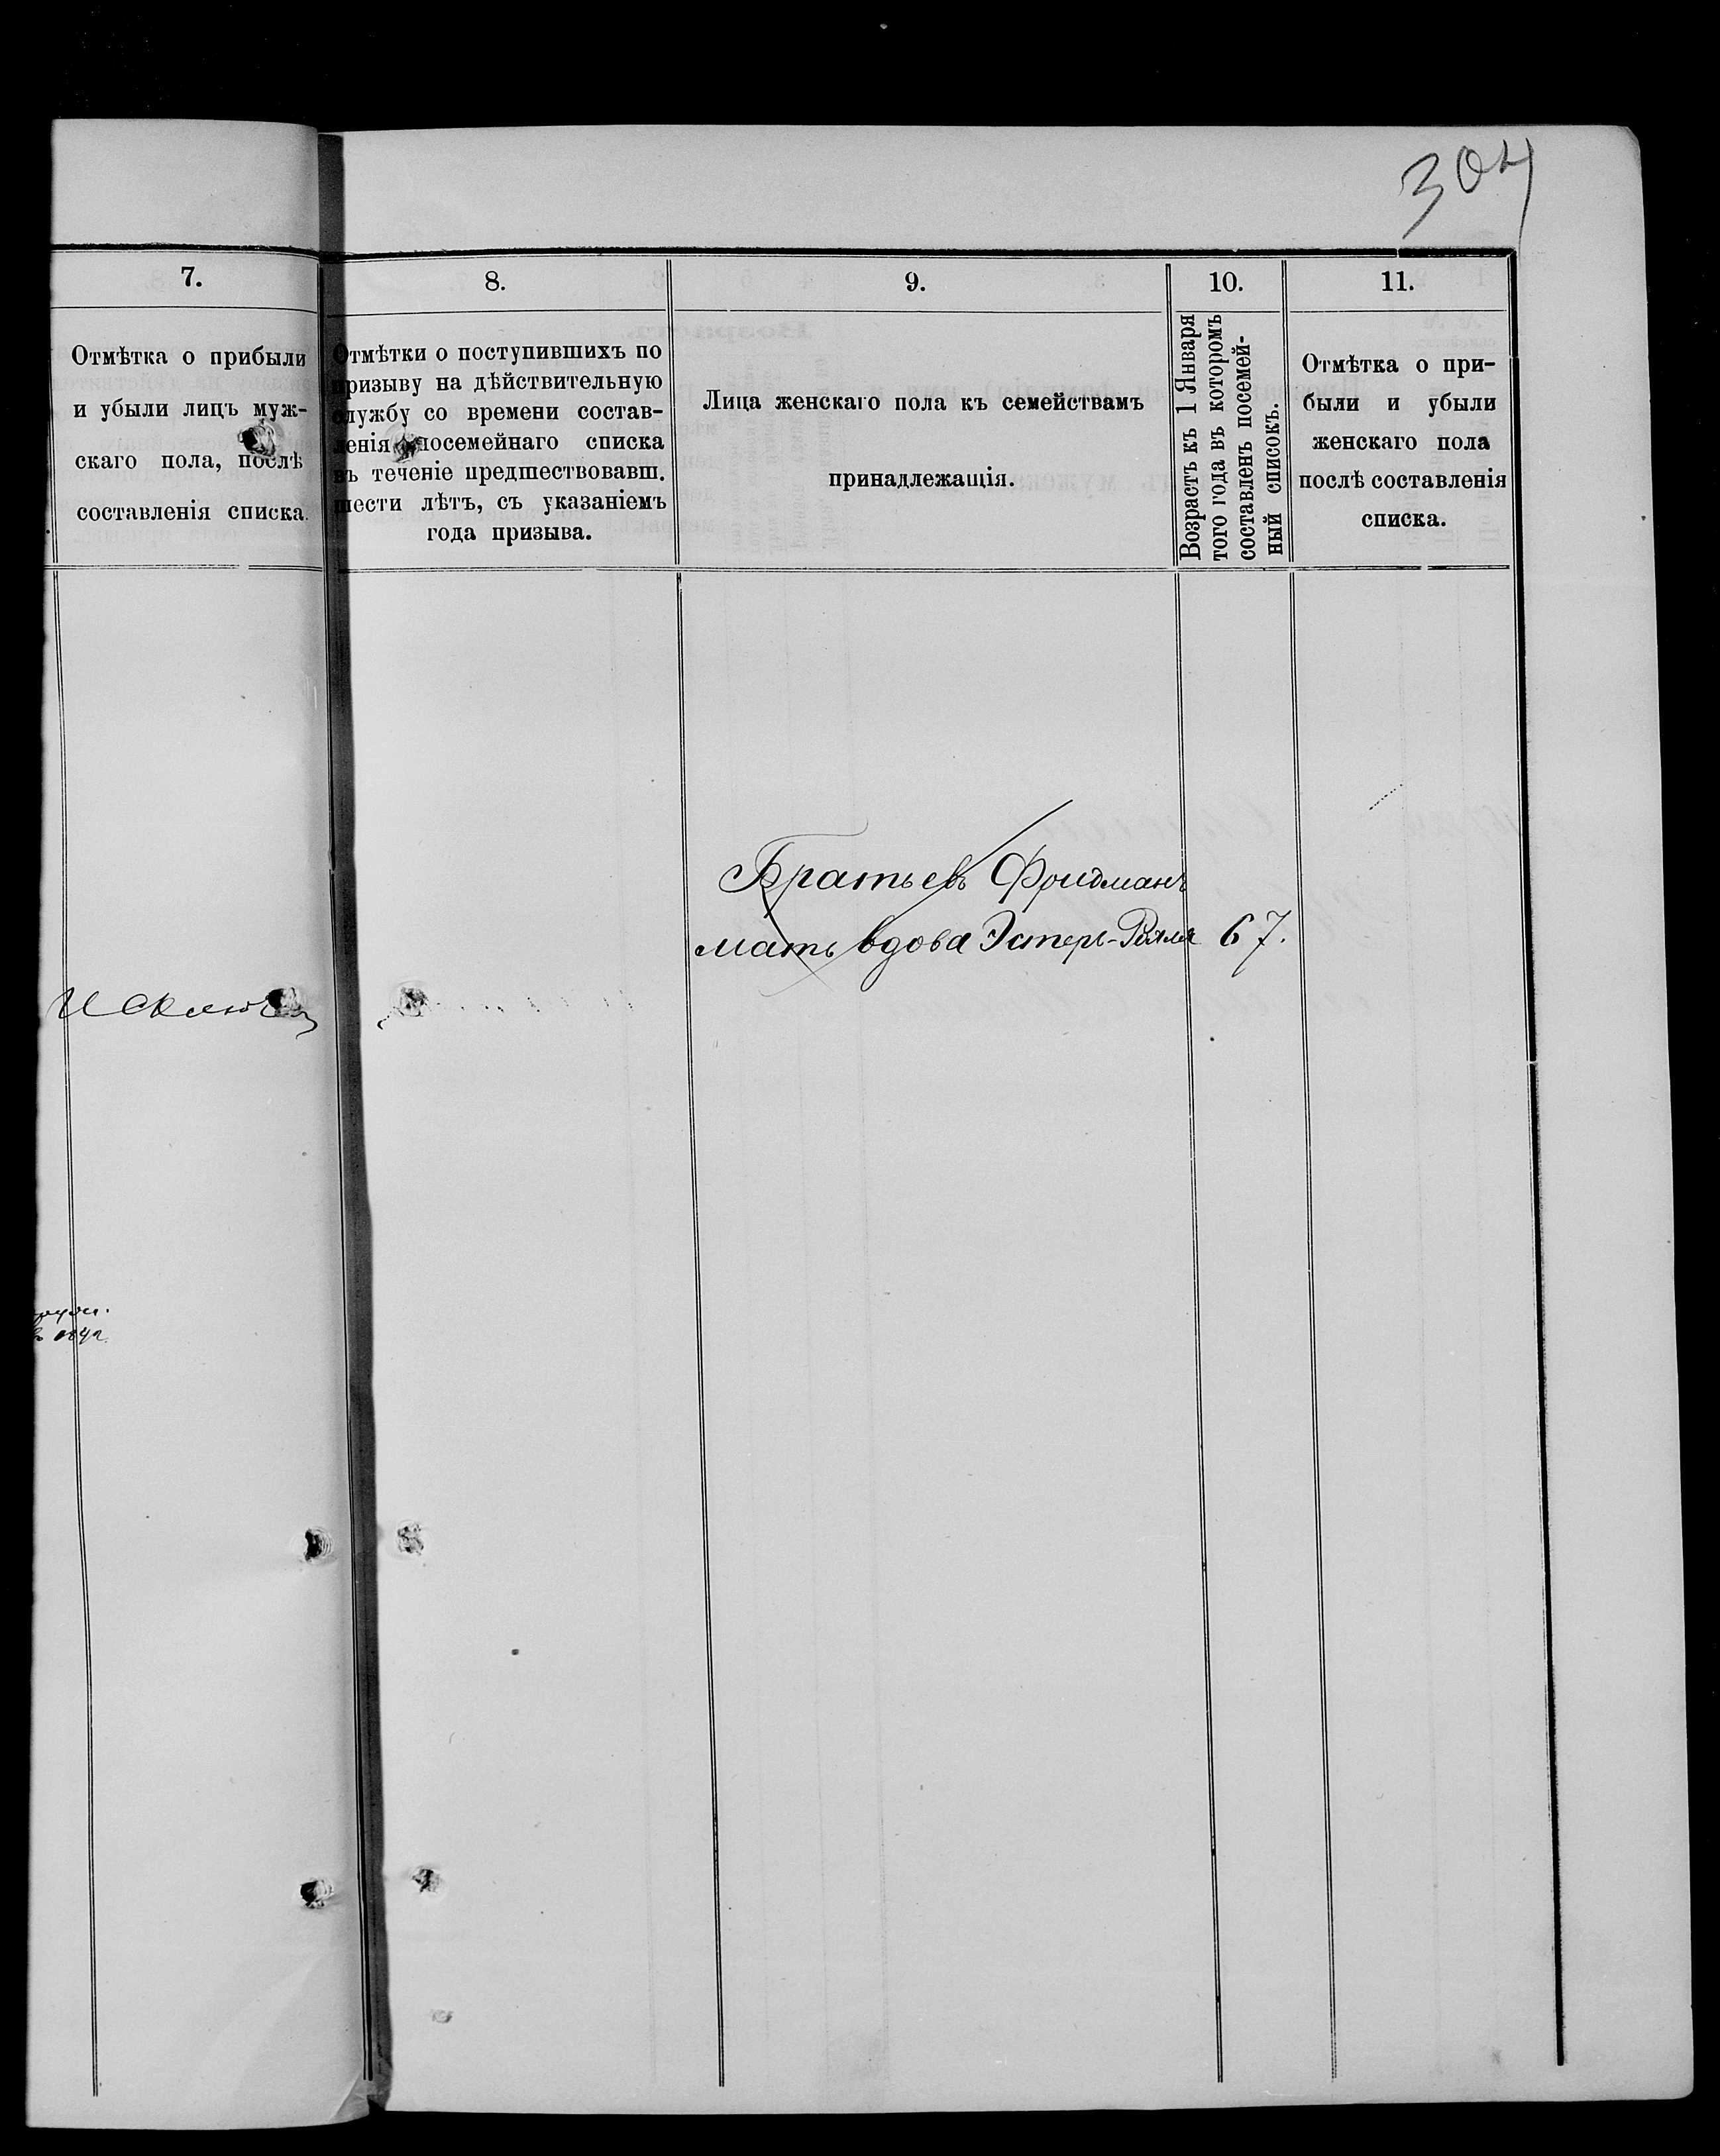 304
7.
Отмѣтка о прибыли
и убыли лицъ муж-
скаго пола, послѣ
составленія списка.
8.
Отмѣтки о поступившихъ по
призыву на дѣйствительную
службу со времени состав-
ленія посемейнаго списка
въ теченіе предшествовавш.
шести лѣтъ, съ указаніемъ
года призыва.
9.
Лица женскаго пола къ семействамъ
принадлежащія.
10.
Возрастъ къ 1 Января
того года въ которомъ
составленъ посемей-
ный списокъ.
11.
Отмѣтка о при-
были и убыли
женскаго пола
послѣ составленія
списка.
Братьевъ Фридманъ
мать вдова Эстеръ- 67.
Исключ